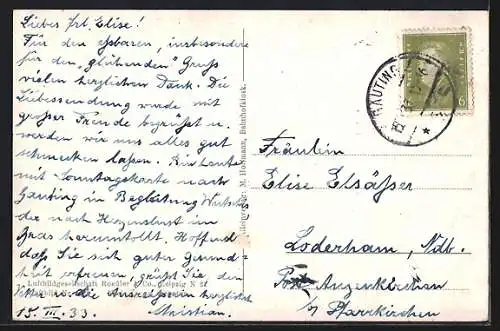 Liebes Frl. Elise!
Für den essbaren, insbesondere
für den „glühenden" Gruß
vielen herzlichen Dank. Die
Liebessendung wurde mit
großer Freude begrüßt u.
werden wir uns alles gut
schmecken lassen. Bin heute
mit Sonntagskarte nach
Gauting in Begleitung
der nach Herzenslust im
Gras herumtollt. Hoffend
daß Sie sich guter Gesund-
heit erfreuen, grüßt Sie der
die Ausreißerin herzlichst
15. III. 33. Christian.
Luftbildgesellschaft Roeßler & Co., Leipzig N 22
M. Hofmann, Bahnhofkiosk.
GAUTING
6
Fräulein
Elise Elsäßer
Loderham, Ndb.
Post Anzenkirchen
b/ Pfarrkirchen